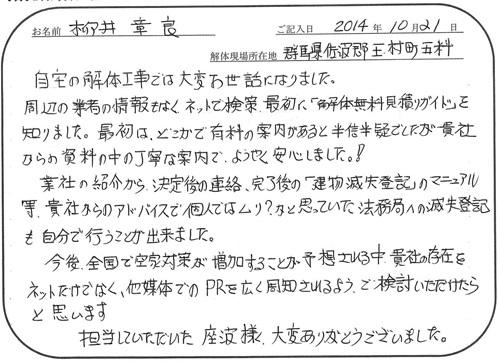 お名前 柳井 章良 ご記入日 2014年10月21日
解体現場所在地 群馬県佐波郡玉村町五料
自宅の解体工事では大変お世話になりました。
周辺の業者の情報もなく、ネットで検索、最初に「解体無料見積りガイド」を
知りました。最初は、どこかで有料の案内があると半信半疑でしたが貴社
からの資料の中の丁寧な案内で、ようやく安心しました。!
業社の紹介から、決定後の連絡、完了後の「建物滅失登記」のマニュアル
等、貴社からのアドバイスで個人ではムリ?かなと思っていた法務局への滅失登記
も自分で行うことが出来ました。
今後、全国で空家対策が増加することが予想される中、貴社の存在を
ネットだけでなく、他媒体でのPRを広く周知されるよう、ご検討いただけたら
と思います
担当していただいた座波様、大変ありがとうございました。